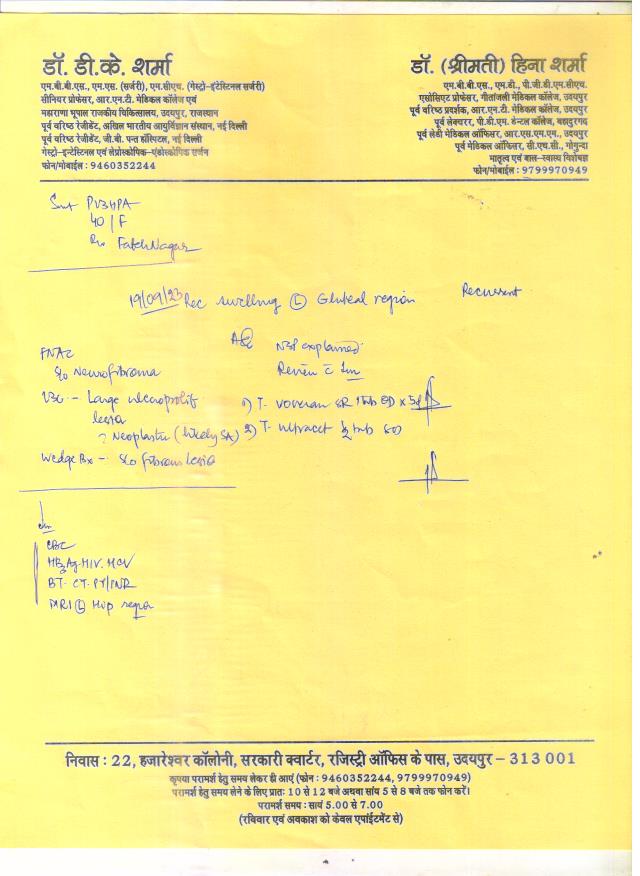 डॉ. डी.के. शर्मा
एम.बी.बी.एस., एम.एस. (सर्जरी), एम.सीएच. (गेस्ट्रो-इंटेस्टिनल सर्जरी)
सीनियर प्रोफेसर, आर.एन.टी. मेडिकल कॉलेज एवं
महाराणा भूपाल राजकीय चिकित्सालय, उदयपुर, राजस्थान
पूर्व वरिष्ठ रेजीडेंट, अखिल भारतीय आयुर्विज्ञान संस्थान, नई दिल्ली
पूर्व वरिष्ठ रेजीडेंट, जी.बी. पन्त हॉस्पिटल, नई दिल्ली
गेस्ट्रो-इन्टेस्टिनल एवं लेप्रोस्कोपिक-एंडोस्कोपिक सर्जन
फोन/मोबाईल : 9460352244
डॉ. (श्रीमती) हिना शर्मा
एम.बी.बी.एस., एम.डी., पी.जी.डी.एम.सीएच.
एसोसिएट प्रोफेसर, गीतांजली मेडिकल कॉलेज, उदयपुर
पूर्व वरिष्ठ प्रदर्शक, आर.एन.टी. मेडिकल कॉलेज, उदयपुर
पूर्व लेक्चरर, पी.डी.एम. डेन्टल कॉलेज, बहादुरगढ़
पूर्व लेडी मेडिकल ऑफिसर, आर.एस.एम.एम., उदयपुर
पूर्व मेडिकल ऑफिसर, सी.एच.सी., गोगुन्दा
मातृत्व एवं बाल-स्वास्थ्य विशेषज्ञ
फोन/मोबाईल : 9799970949
Smt PUSHPA
40/F
R/o FatehNagar
19/09/23 Rec swelling Ⓛ Gluteal region Recurrent
explained
Review c̄
FNAC
s/o Neurofibroma
Large
lesion
? Neoplastic (likely SA)
Wedge Bx - s/o fibrous lesion
1) T- voveran SR 1tab BD x 5d
2) T- ultracet ½ tab SOS
CBC
HBsAg. HIV. HCV
BT. CT. PT/INR
MRI Ⓛ Hip region
निवास : 22, हजारेश्वर कॉलोनी, सरकारी क्वार्टर, रजिस्ट्री ऑफिस के पास, उदयपुर – 313 001
कृपया परामर्श हेतु समय लेकर ही आएं (फोन : 9460352244, 9799970949)
परामर्श हेतु समय लेने के लिए प्रातः 10 से 12 बजे अथवा सांय 5 से 8 बजे तक फोन करें।
परामर्श समय : सायं 5.00 से 7.00
(रविवार एवं अवकाश को केवल एपांईटमेंट से)